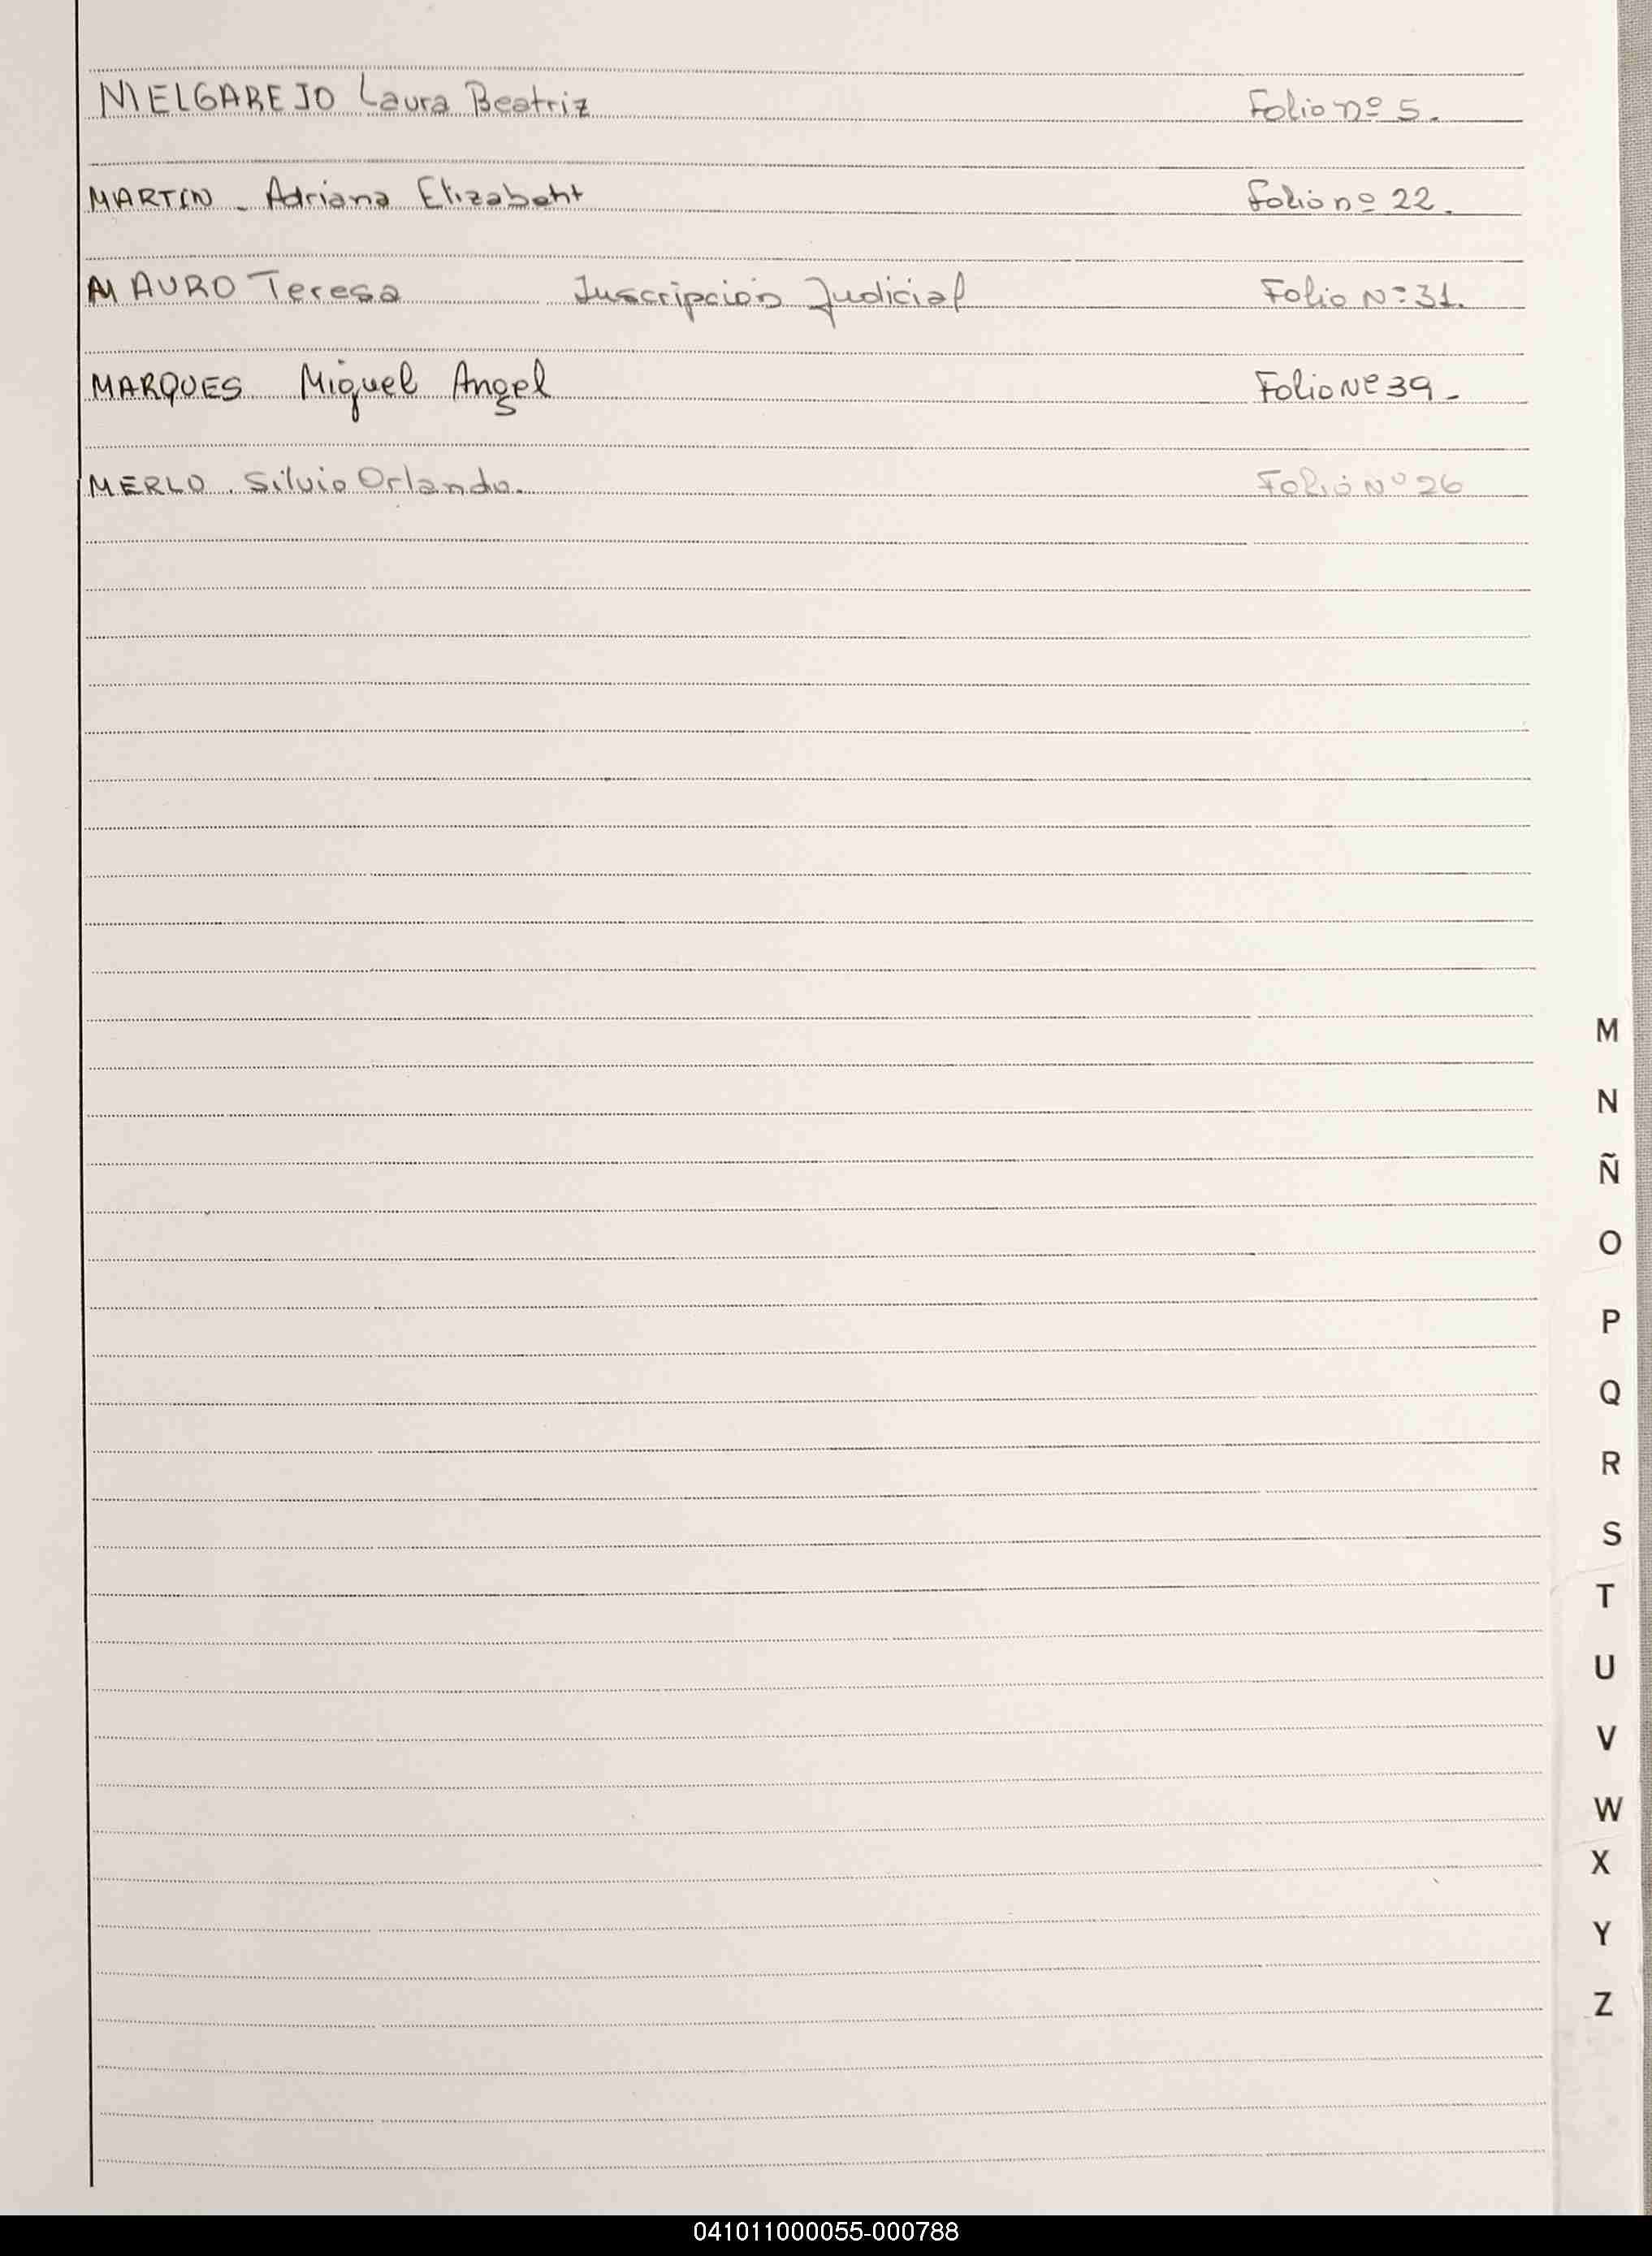 MELGAREJO Laura Beatriz Folio nº 5.
MARTIN - Adriana Elizabeht Folio nº 22.
MAURO Teresa Inscripción Judicial Folio Nº 31.
MARQUES Miguel Angel Folio Nº 39-
MERLO. Silvio Orlando. Folio Nº 26
M
N
Ñ
O
P
Q
R
S
T
U
V
W
X
Y
Z
041011000055-000788